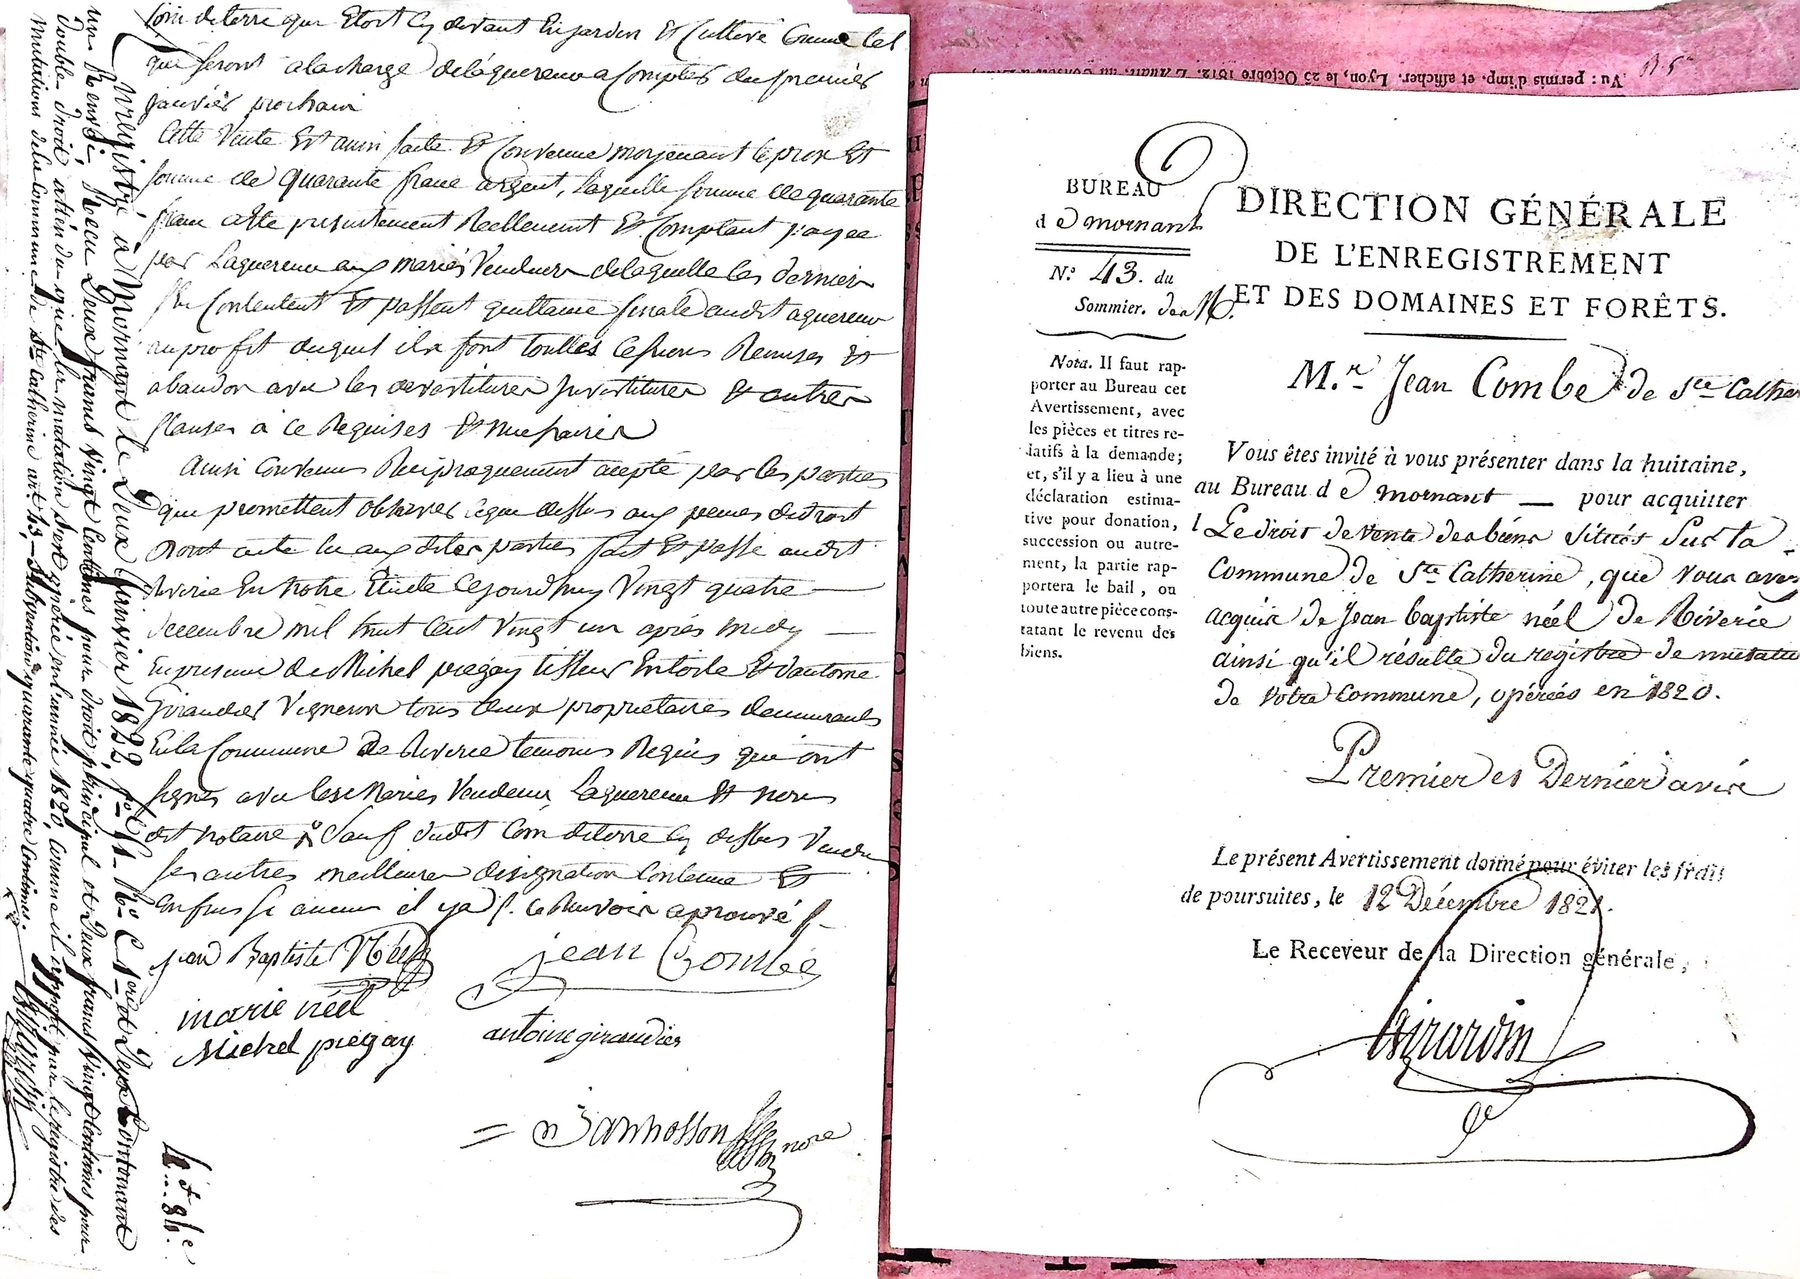 coin de terre que Etoit cy devant En jardin Et Cultivé Comme tel
que seront a la charge de laquereur a Compter du premier
janvier prochain
Cette Vente Est ainsi faite Et Convenue moyenant le prix Et
somme de quarante franc argent, laquelle somme de quarante
franc a Ette presentement Reellement Et Comptant payée
par Laquereur aux mariés Vendeurs de laquelle les dernier
sen Contentent Et passent quittance finale audit aquereur
au profit duquel ils font touttes Cessions Remises Et
abandon avec les devestitures Investitures Et autres
Clauses à ce Requises Et necessaires
Ainsi Convenu Reciproquement accepté par les parties
que promettent observer ce que dessus aux peines de droit
Dont acte lu aux dites parties fait Et passé audit
Riverie En notre Etude Cejourdhuy Vingt quatre
decembre mil huit Cent Vingt un après midy
En presence de Michel piegay tisseur En toile Et dantoine
Giraudier Vigneron tous deux proprietaires demeurants
En la Commune de Riverie temoins Requis qui ont
signés avec lesd Maries Vendeurs, Laquereur Et nous
dit notaire Sauf dudit Coin de terre cy dessus Vendu
ses autres meilleures designation Contenue Et
Confins si aucun il y a /. ce Renvoi aprouvé /.
jean Baptiste Néel
jean Combe
marie néel
antoine giraudier
Michel piegay
Janhosson nore
Enregistré à Mornant le Deux Janvier 1822, fo 51 Ro C 1ere et Deux Contenant
un Renvoi. Recu Deux francs vingt Centimes pour droit principal et Deux francs vingt Centimes pour
Double droit attendu que la mutation s'est opérée en l'année 1820, comme il appert par le registre des
Mutations de la Commune de Ste Catherine art. 43. Subvention quarante quatre Centimes
Girardin
4 f 84 c
Vu : permis d'imp. et afficher. Lyon, le 25 Octobre 1812. L'Audit. au Conseil
BUREAU
de mornant
N.° 43. du
Sommier. des M.
DIRECTION GÉNÉRALE
DE L'ENREGISTREMENT
ET DES DOMAINES ET FORÊTS.
Nota. Il faut rap-
porter au Bureau cet
Avertissement, avec
les pièces et titres re-
latifs à la demande;
et, s'il y a lieu à une
déclaration estima-
tive pour donation,
succession ou autre-
ment, la partie rap-
portera le bail, ou
toute autre pièce cons-
tatant le revenu des
biens.
M.r Jean Combe de Ste Cather
Vous êtes invité à vous présenter dans la huitaine,
au Bureau de mornant — pour acquitter
Le droit de vente des biens situés sur la
commune de Ste Catherine, que vous avez
acquis de Jean baptiste néel de Riverie
ainsi qu'il résulte du registre de mutation
de votre commune, opérées en 1820.
Premier et Dernier avis
Le présent Avertissement donné pour éviter les frais
de poursuites, le 12 Décembre 1821.
Le Receveur de la Direction générale,
Girardin